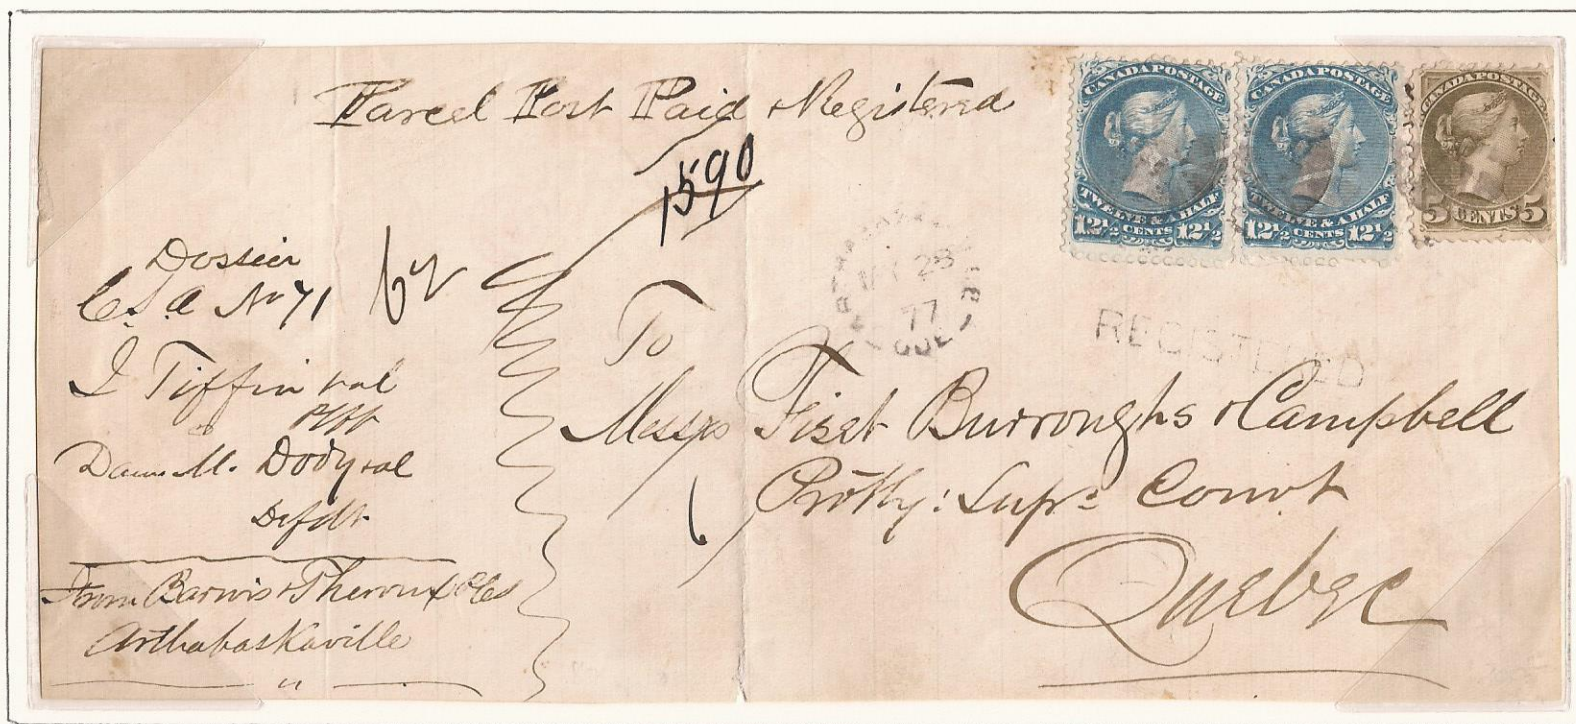 Parcel Post Paid & Registered
1590
CANADA POSTAGE
TWELVE & A HALF
12½ CENTS 12½
CANADA POSTAGE
TWELVE & A HALF
12½ CENTS 12½
CANADA POSTAGE
5 CENTS 5
28
77
QUE
REGISTERED
Dossier
C.S.A No 71
I Tiffin & al
Plff
Dame M. Dody & al
Defdt
From Barwis & Theroux
Arthabaskaville
To
Messrs Fiset Burroughs & Campbell
Prothy: Supr: Court
Quebec